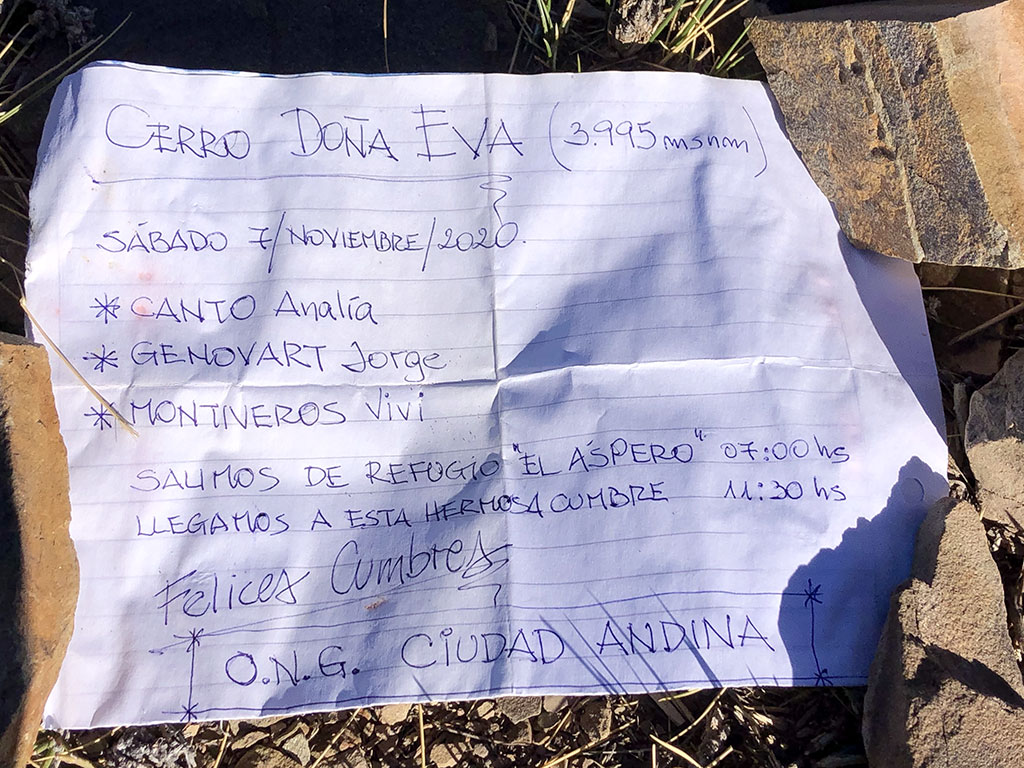 CERRO DOÑA EVA (3.995 msnm)
SÁBADO 7/NOVIEMBRE/2020.
* CANTO Analía
* GENOVART Jorge
* MONTIVEROS Vivi
SALIMOS DE REFUGIO "EL ÁSPERO" 07:00 hs
LLEGAMOS A ESTA HERMOSA CUMBRE 11:30 hs
Felices Cumbres
O.N.G. CIUDAD ANDINA